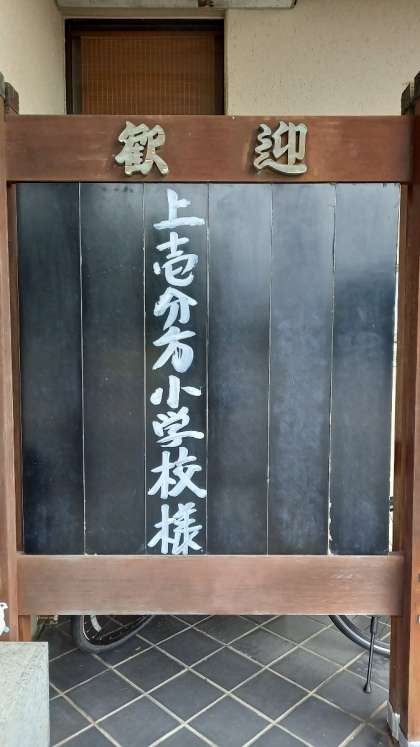 歓迎
上壱分方小学校様